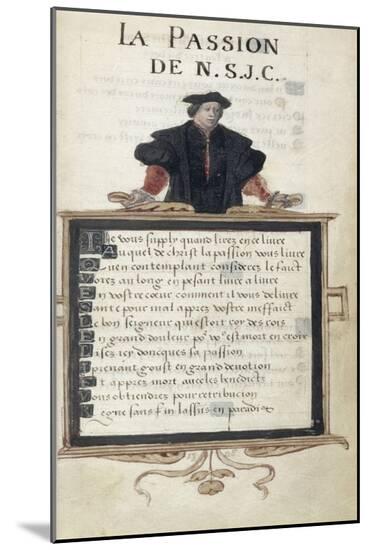 LA PASSION
DE N.S.J.C.
Ie vous supply quand lirez en ce livre
Auquel de christ la passion vous livre
Quen contemplant considerez le faict
Vorez au long en pesant livre a livre
En vostre coeur comment il vous delivre
Sante pour mal apprez vostre meffaict
Le bon seigneur qui estoit roy des rois
En grand douleur po vo est mort en croix
Lisez icy doncques sa passion
Y prenant goust en grand devotion
Et apprez mort avec les benedictz
Vous obtiendrez pour retribucion
Regne sans fin lassus en paradis